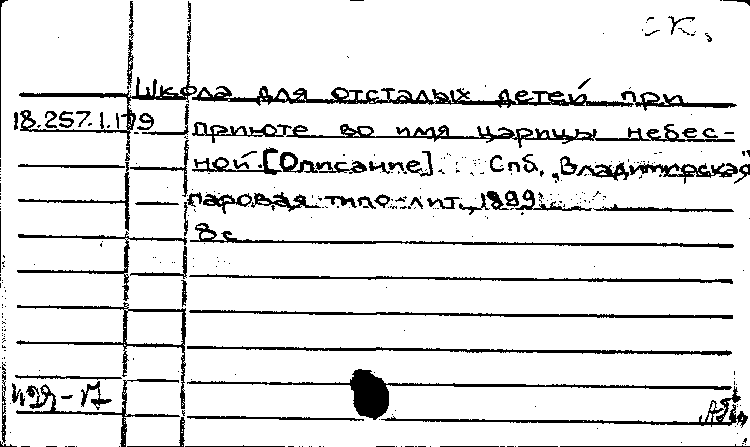 СК.
Школа для отсталых детей при
18.257.1.179
приюте во имя царицы небес-
ной [Описание]. Спб, „Владимирская"
паровая типо-лит., 1899.
8 с.